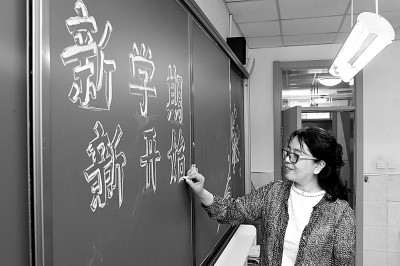 新学期
新开始